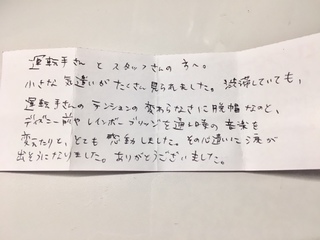 運転手さんとスタッフさんの方へ。
小さな気遣いがたくさん見られました。渋滞していても、
運転手さんのテンションの変わらなさに脱帽なのと、
ディズニー前やレインボーブリッジを通る時の音楽を
変えたりと、とても感動しました。その心遣いに涙が
出そうになりました。ありがとうございました。